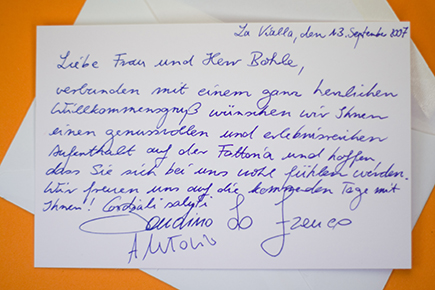 La Vialla, den 13. September 1997
Liebe Frau und Herr Bohle,
verbunden mit einem ganz herzlichen
Willkommensgruß wünschen wir Ihnen
einen genussvollen und erlebnisreichen
Aufenthalt auf der Fattoria und hoffen
dass Sie sich bei uns wohl fühlen werden.
Wir freuen uns auf die kommenden Tage mit
Ihnen! Cordiali saluti
Antonio